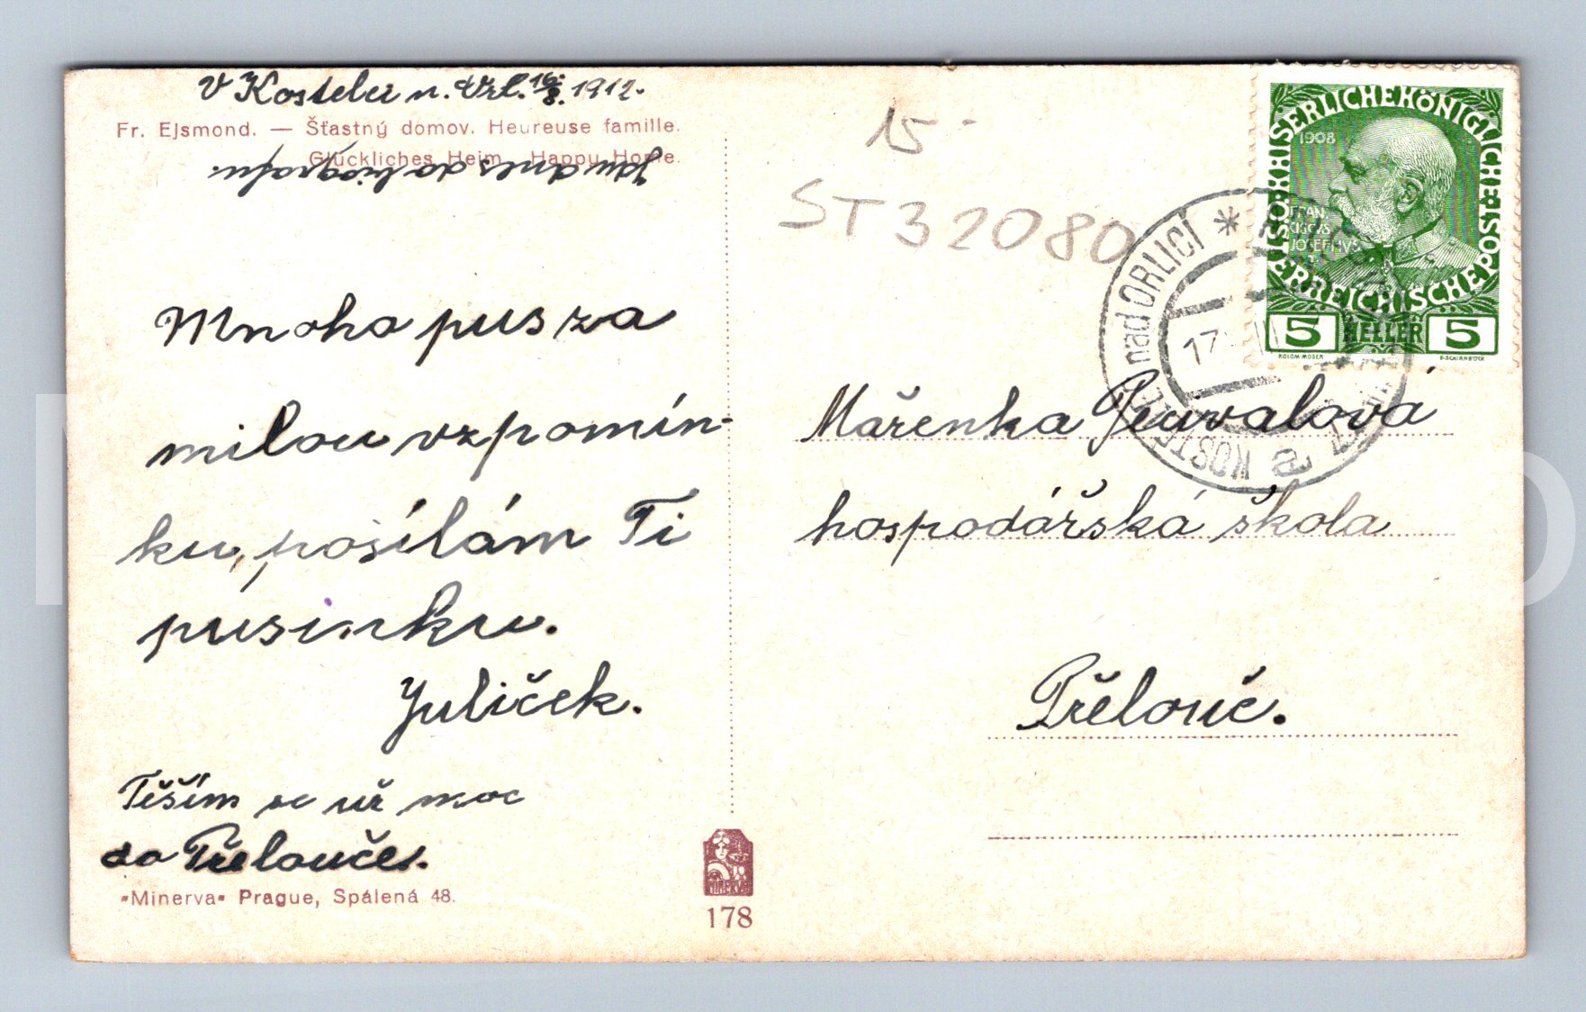 V Kostelci n. Orl. 16/8. 1912.
Fr. Ejsmond. — Šťastný domov. Heureuse famille.
Glückliches Heim. Happy Home.
Jdu dnes do biografu.
Mnoho pus za
milou vzpomín-
ku, posílám Ti
pusinku.
Juliček.
Těším se už moc
do Přelouče.
"Minerva" Prague, Spálená 48.
178
15-
ST32080
KAISERLICHE KÖNIGLICHE ÖSTERREICHISCHE POST
1908
FRANCISCVS JOSEPHVS I
5 HELLER 5
KOLOM. MOSER
F. SCHIRNBÖCK
nad ORLICÍ
KOSTEL
17
Mařenka
hospodářská škola
Přelouč.